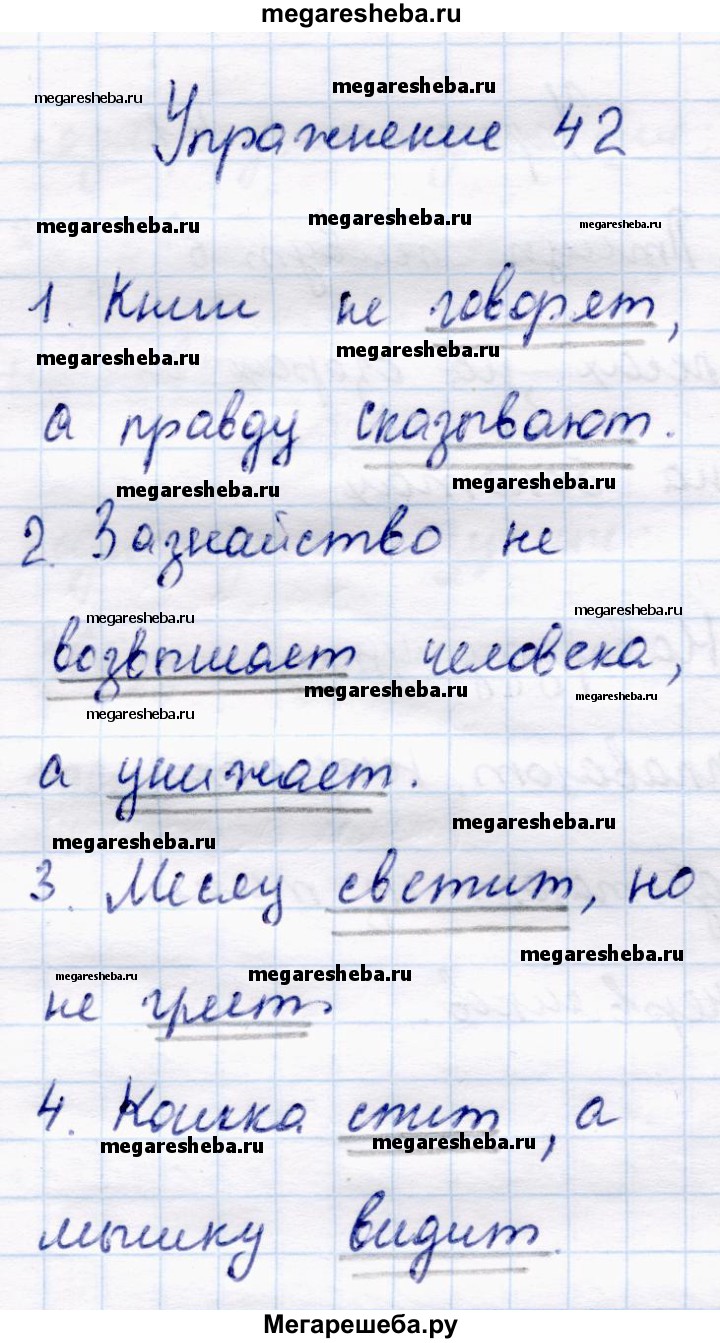 megaresheba.ru
megaresheba.ru megaresheba.ru
Упражнение 42
megaresheba.ru megaresheba.ru megaresheba.ru
1. Книги не говорят,
megaresheba.ru megaresheba.ru
а правду сказывают.
megaresheba.ru megaresheba.ru
2. Зазнайство не
megaresheba.ru megaresheba.ru
возвышает человека,
megaresheba.ru megaresheba.ru megaresheba.ru
а унижает.
megaresheba.ru megaresheba.ru
3. Месяц светит, но
megaresheba.ru megaresheba.ru megaresheba.ru
не греет.
4. Кошка спит, а
megaresheba.ru megaresheba.ru
мышку видит.
Мегарешеба.ру